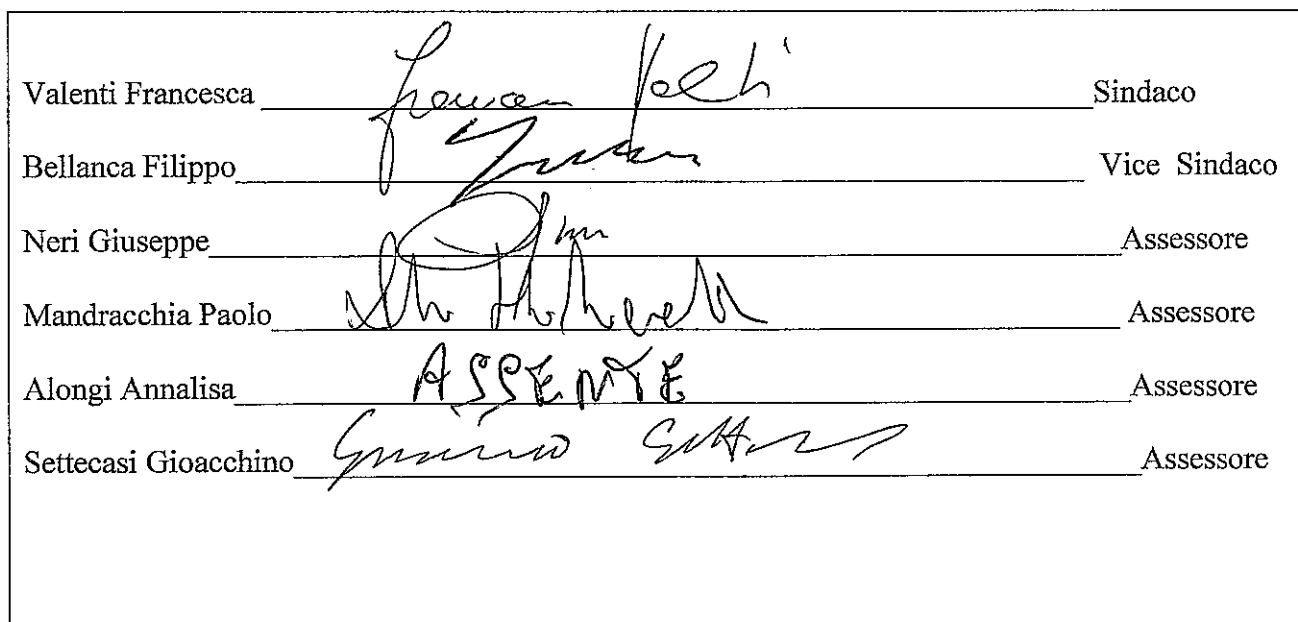 Valenti Francesca Sindaco
Bellanca Filippo Vice Sindaco
Neri Giuseppe Assessore
Mandracchia Paolo Assessore
Alongi Annalisa ASSENTE Assessore
Settecasi Gioacchino Assessore